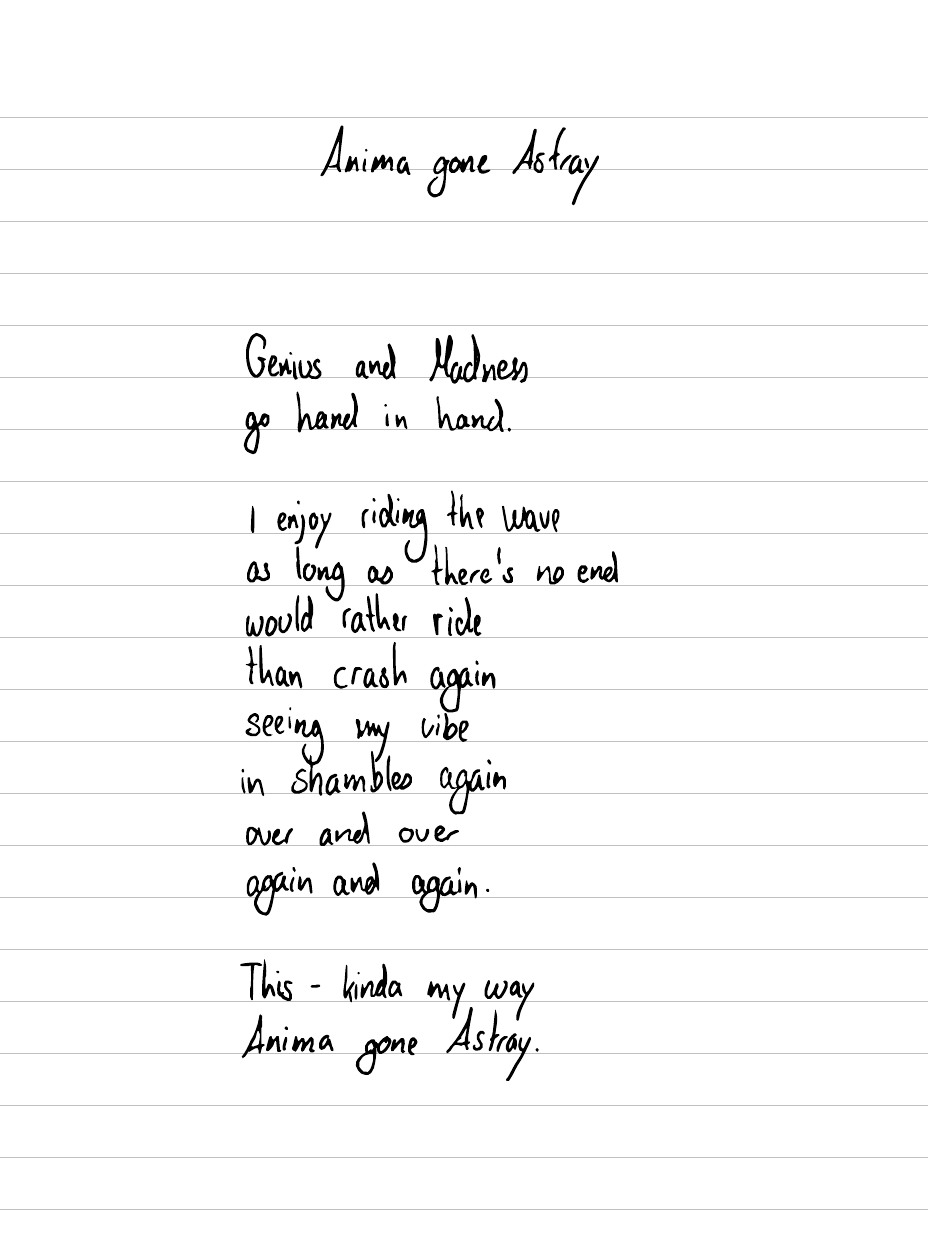 Anima gone Astray
Genius and Madness
go hand in hand.
I enjoy riding the wave
as long as there's no end
would rather ride
than crash again
seeing my vibe
in shambles again
over and over
again and again.
This - kinda my way
Anima gone Astray.